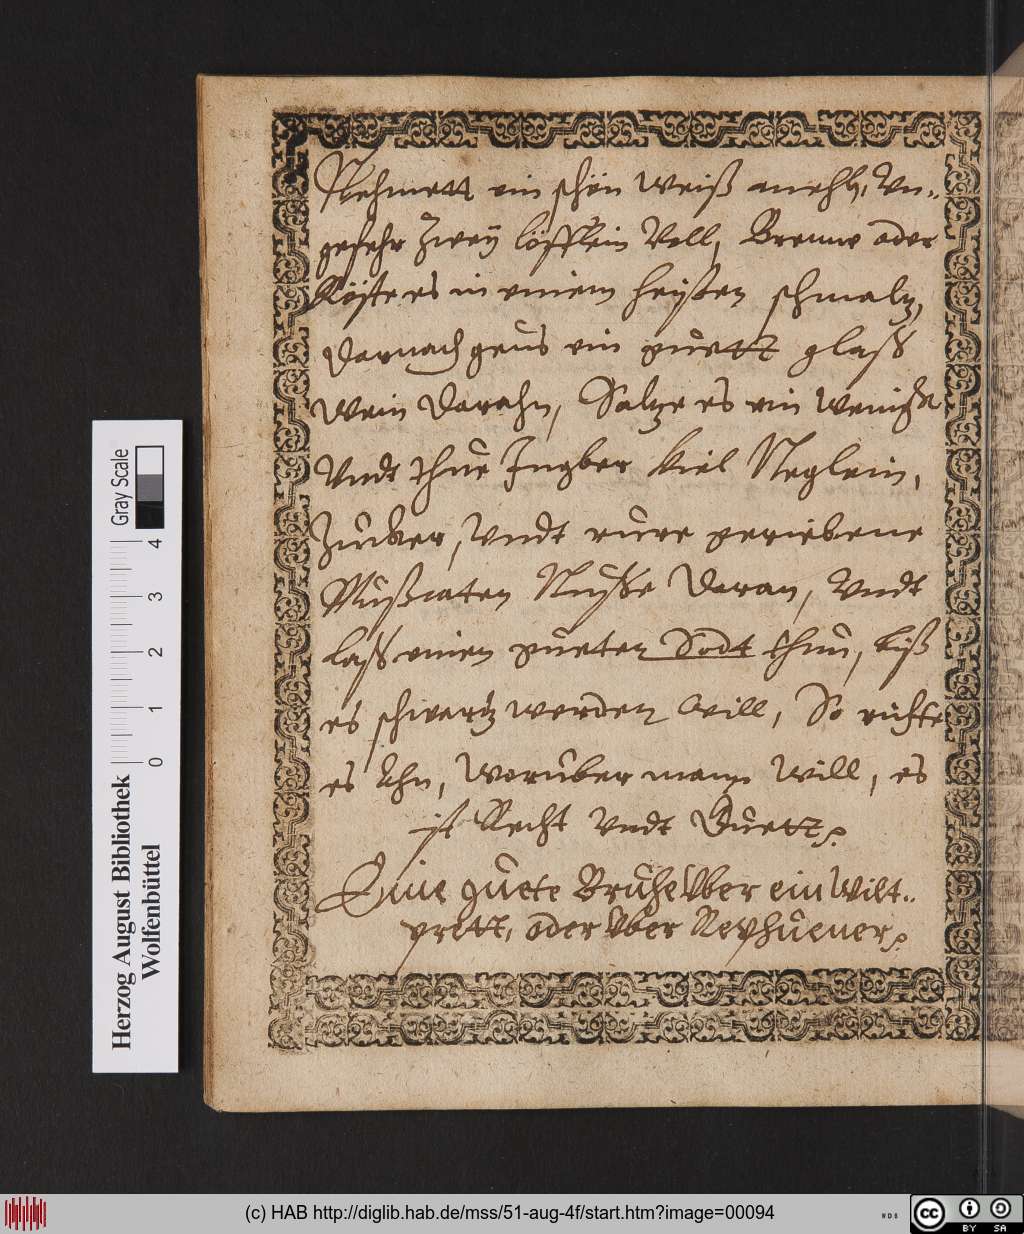 Nehmett ein schön weiß mehl, Vn..
gefehr Zwey löfflein Voll, Brenne oder
Röste es in einem heyßen schmaltz,
darnach geus ein guett glaß
Wein darahn, Saltze es ein wenig
Vndt thue Jngber Viel Neglein,
Zucker, Vndt eure geriebene
Mußcaten Nuße daran, Vndt
laß einen gueten Sodt thun, biß
es schwartz werden will, So richte
es Ahn, Warüber mann will, es
ist Recht Vndt Guett.
Eine guete Brühe Vber ein Wilt..
prett, oder Vber Rephüener.
Gray Scale
0 1 2 3 4
Herzog August Bibliothek
Wolfenbüttel
(c) HAB http://diglib.hab.de/mss/51-aug-4f/start.htm?image=00094
WDB
cc BY SA